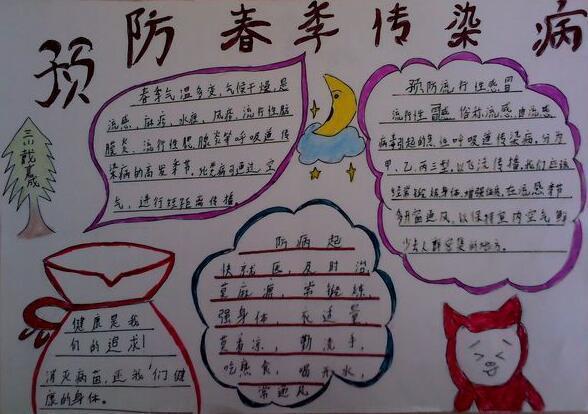 预防春季传染病
三川戴晨成
春季气温多变,气候干燥,是
流感、麻疹、水痘、风疹、流行性脑
膜炎、流行性腮腺炎等呼吸道传
染病的高发季节。此类病可通过空
气,进行短距离传播。
预防流行性感冒
流行性感冒俗称流感,由流感
病毒引起的急性呼吸道传染病,分为
甲、乙、丙三型,以飞沫传播,我们应该
经常锻炼身体,增强体质,在流感季节
多开窗通风,以保持室内空气新
少去人群密集的地方。
健康是我
们的追求!
消灭病菌,还我们健
康的身体。
防病起
快就医,及时治
莫麻痹,常锻炼,
强身体,衣适量
莫着凉,勤洗手,
吃熟食,喝开水,
常通风